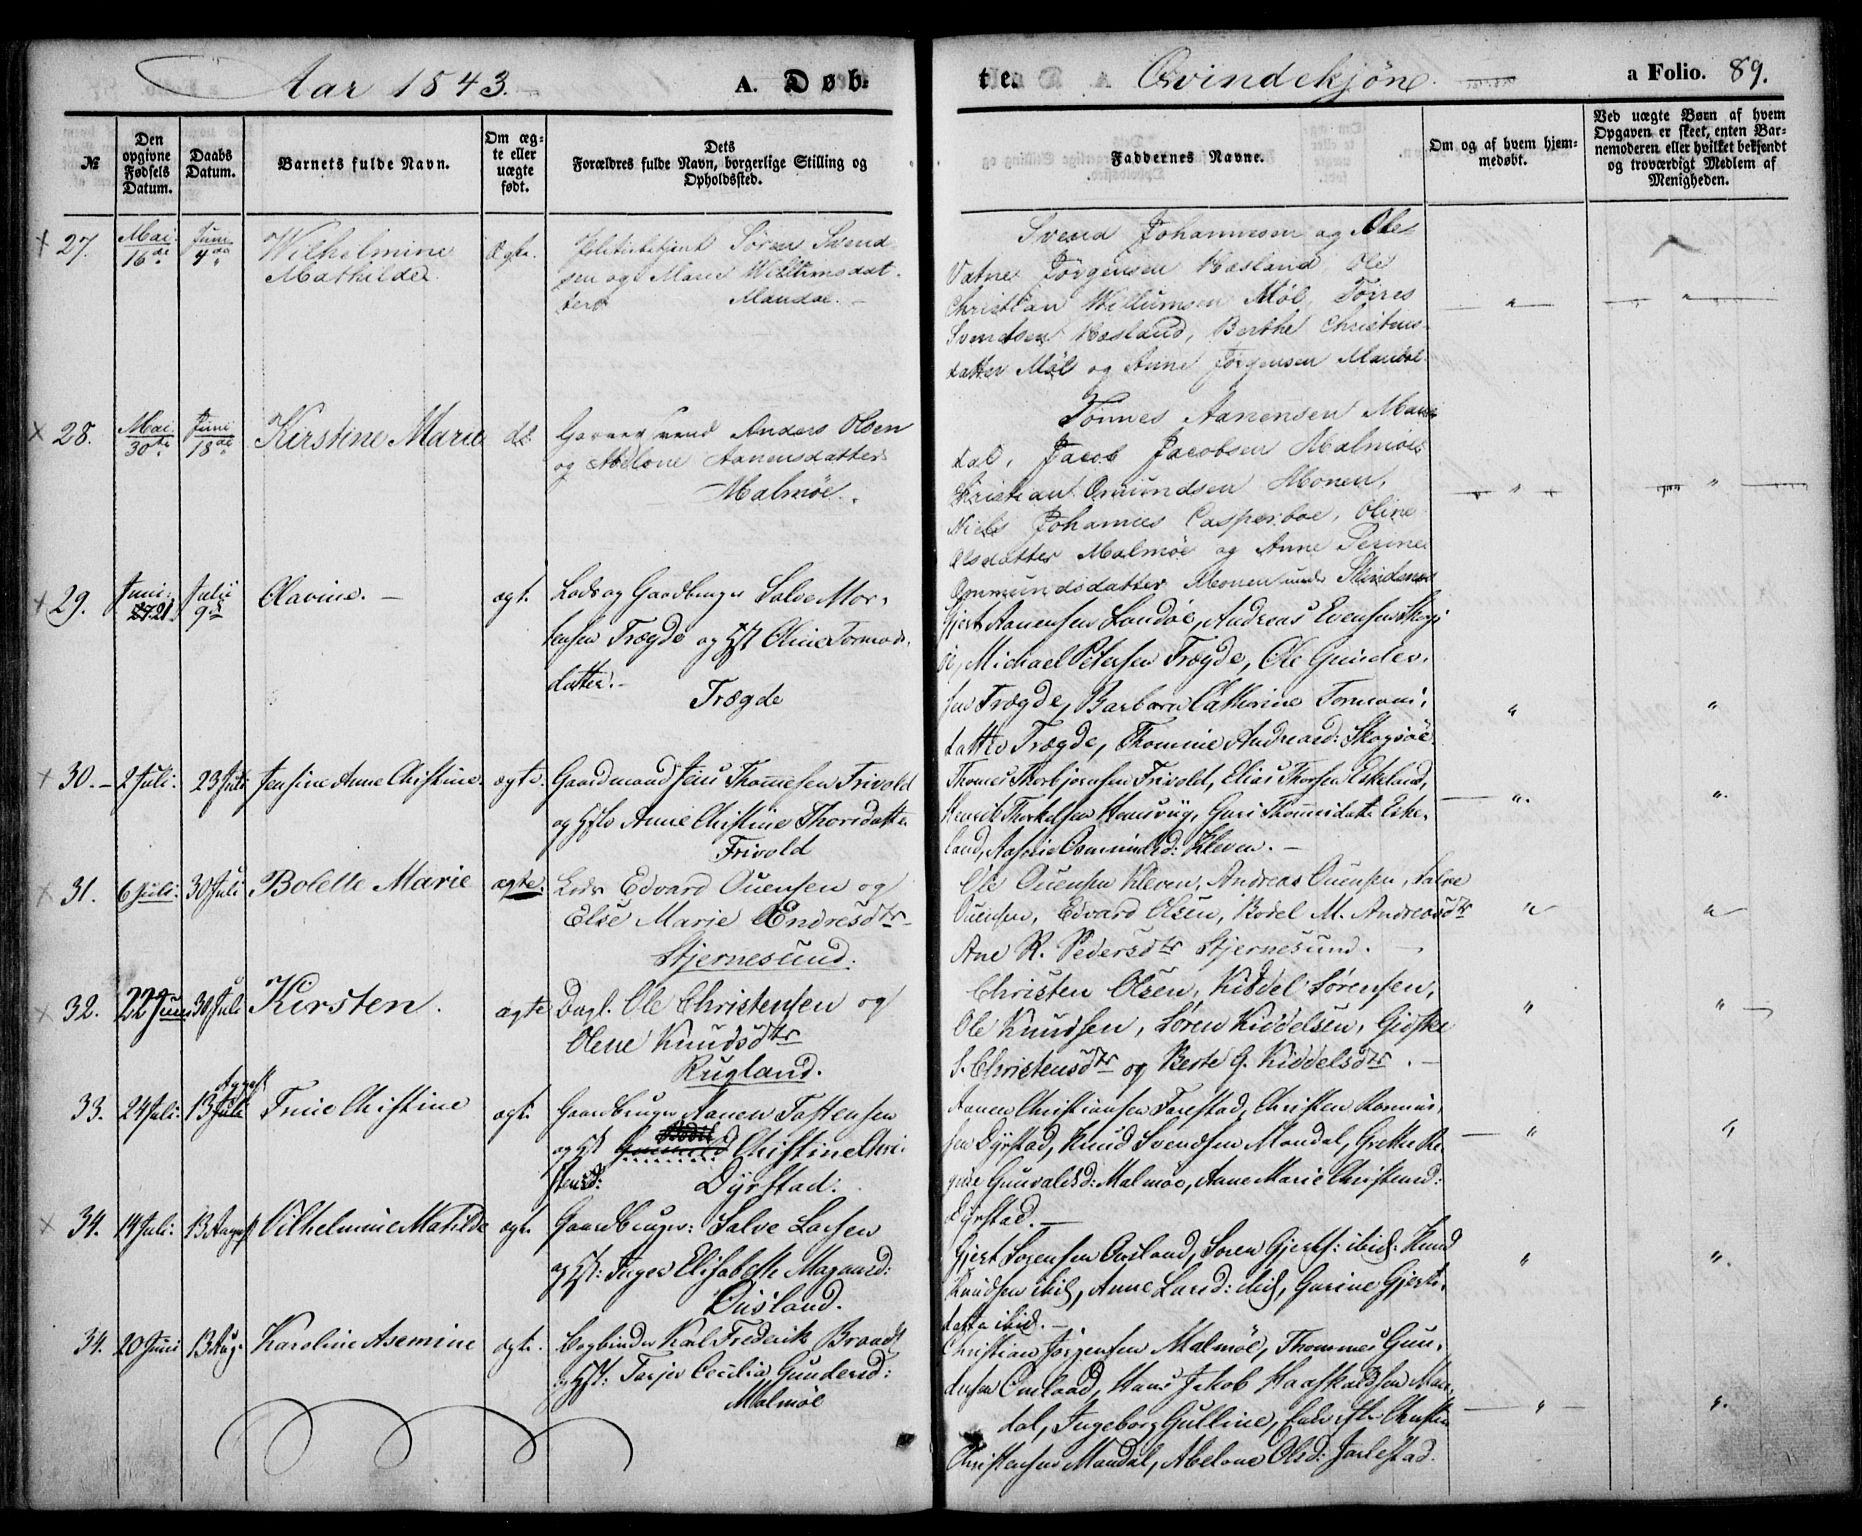 Aar 1843.
A. Døb-
te.
Qvindekjøn
a Folio. 89.
№
Den opgivne Fødsels Datum.
Daabs Datum.
Barnets fulde Navn.
Om ægte eller uægte født.
Dets Forældres fulde Navn, borgerlige Stilling og Opholdssted.
Faddernes Navne.
Om og af hvem hjemmedøbt.
Ved uægte Børn af hvem Opgaven er skeet, enten Barnemoderen eller hvilket bekjendt og troværdigt Medlem af Menigheden.
27.
Mai 16de
Juni 4de
Wilhelmine
Mathilde
Ægte.
Politibetjent Søren Svend
sen og Marie Willumsdat
ter Mandal. -
Svend Johannesen og Ole
Vatne Jørgensen Hæsland, Ole
Christian Willumsen Møl, Tørres
Svendsen Hæsland, Berthe Christens
datter Møl og Anne Jørgensen Mandal
28.
Mai 30te
Juni 18de
Kirstine Marie
do
Anders Olsen
og Abelone Aanensdatter
Malmøe.
Tønnes Aanensen Man
dal, Jacob Jacobsen Malmøe
Christian Omundsen Monen,
Niels Johannes Casperboe, Oline
Olsdatter Malmøe og Anne Serine
Ommundsdatter Monen
29.
Juni: 21
Julii 9de
Olavine. -
ægt.
Lods og Gaardbruger Salve Mor-
tensen Trægde og Hst Oline Tormods
datter. - Trægde
Gjert Aanensen Landøe, Andreas Evensen Skogs
ø, Michael Petersen Trægde, Ole Gunder-
sen Trægde, Barbara Cathrine Tormods
datter Trægde, Thomine Andreasd: Skogsøe
30. -
2 Juli:
23 Juli
Jensine Anne Christine.
ægte.
Gaardmand Jens Thomesen Frivold
og Hst Anne Christine Thorsdatter
Frivold
Thomes Thorbjørnsen Frivold, Elias Thorsen Eskeland,
Henrik Thorkelsen Homsvig, Guri Thomesdatter Eske-
land, Omundsd: Kleven. -
31.
6 Juli:
30 Juli
Bolette Marie
ægte.
Lods Edvard Ouensen og
Else Marie Endresdtr
Stjernesund.
Ole Ouensen Kleven, Andreas Ouensen, Salve
Ouensen, Edvard Olsen, Bodel M. Andreasdtr
Ane R. Pedersdtr Stjernesund. -
32.
22 Juni
30 Juli
Kirsten.
ægte
Dagl. Ole Christensen og
Olene Knudsdtr
Rugland.
Christen Olsen, Kiddel Sørensen,
Ole Knudsen, Søren Kiddelsen, Gidske
S. Christensdtr og Berte G. Kiddelsdtr. -
33.
24 Juli:
13 August
Trine Christine
ægt.
Gaardbruger Aanen Tostensen
og Hst Christine Chri-
stensd: Dyrstad:
Aanen Christiansen Farestad, Christen Rasmus-
sen Dyrstad, Knud Svendsen Mandal, Grethe Re-
gine Gunvalsd: Malmøe, Anne Marie Christensd:
Dyrstad. -
34.
14 Juli:
13 August
Vilhelmine Matilde
ægt.
Gaardbruger: Salve Larsen
og Hst: Inger Elisabeth Magaard:
Ousland.
Gjert Sørensen Ousland, Søren Gjerts: ibid: Knud
Knudsen ibid, Anne Larsd: ibid, Gurine Gjerts-
datter ibid. -
34.
20 Juni
13 Aug.
Karoline Asemine
ægte.
Bogbinder Karl Frederik Brandt
og Hst: Tarjer Cecilia Gundersd:
Malmøe
Christian Jørgensen Malmøe, Thommes Gun-
dersen Omland, Hans Jakob Haaskaldsen Man-
dal, Ingeborg Gulline,
Christensen Mandal, Abelone Olsd: Jarlestad.